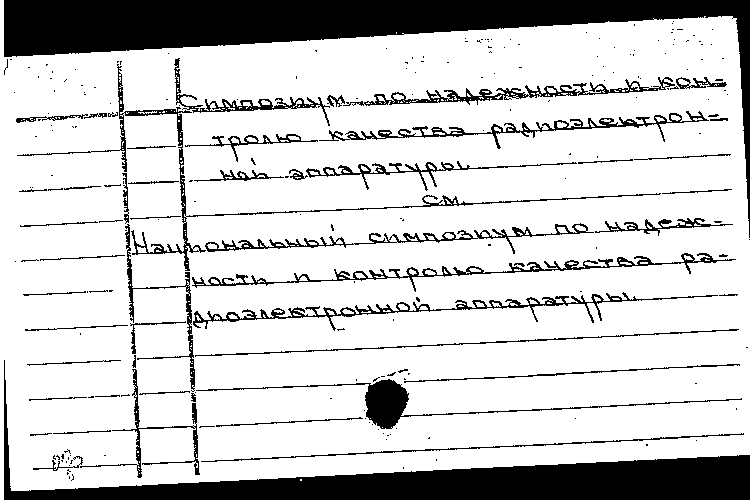 Симпозиум по надежности и кон-
тролю качества радиоэлектрон-
ной аппаратуры.
см.
Национальный симпозиум по надеж-
ности и контролю качества ра-
диоэлектронной аппаратуры.